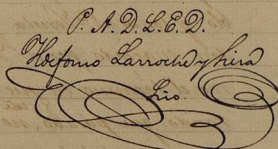 P. A. D. L. E. D.
Ildefonso Larroche y Siera
Srio.